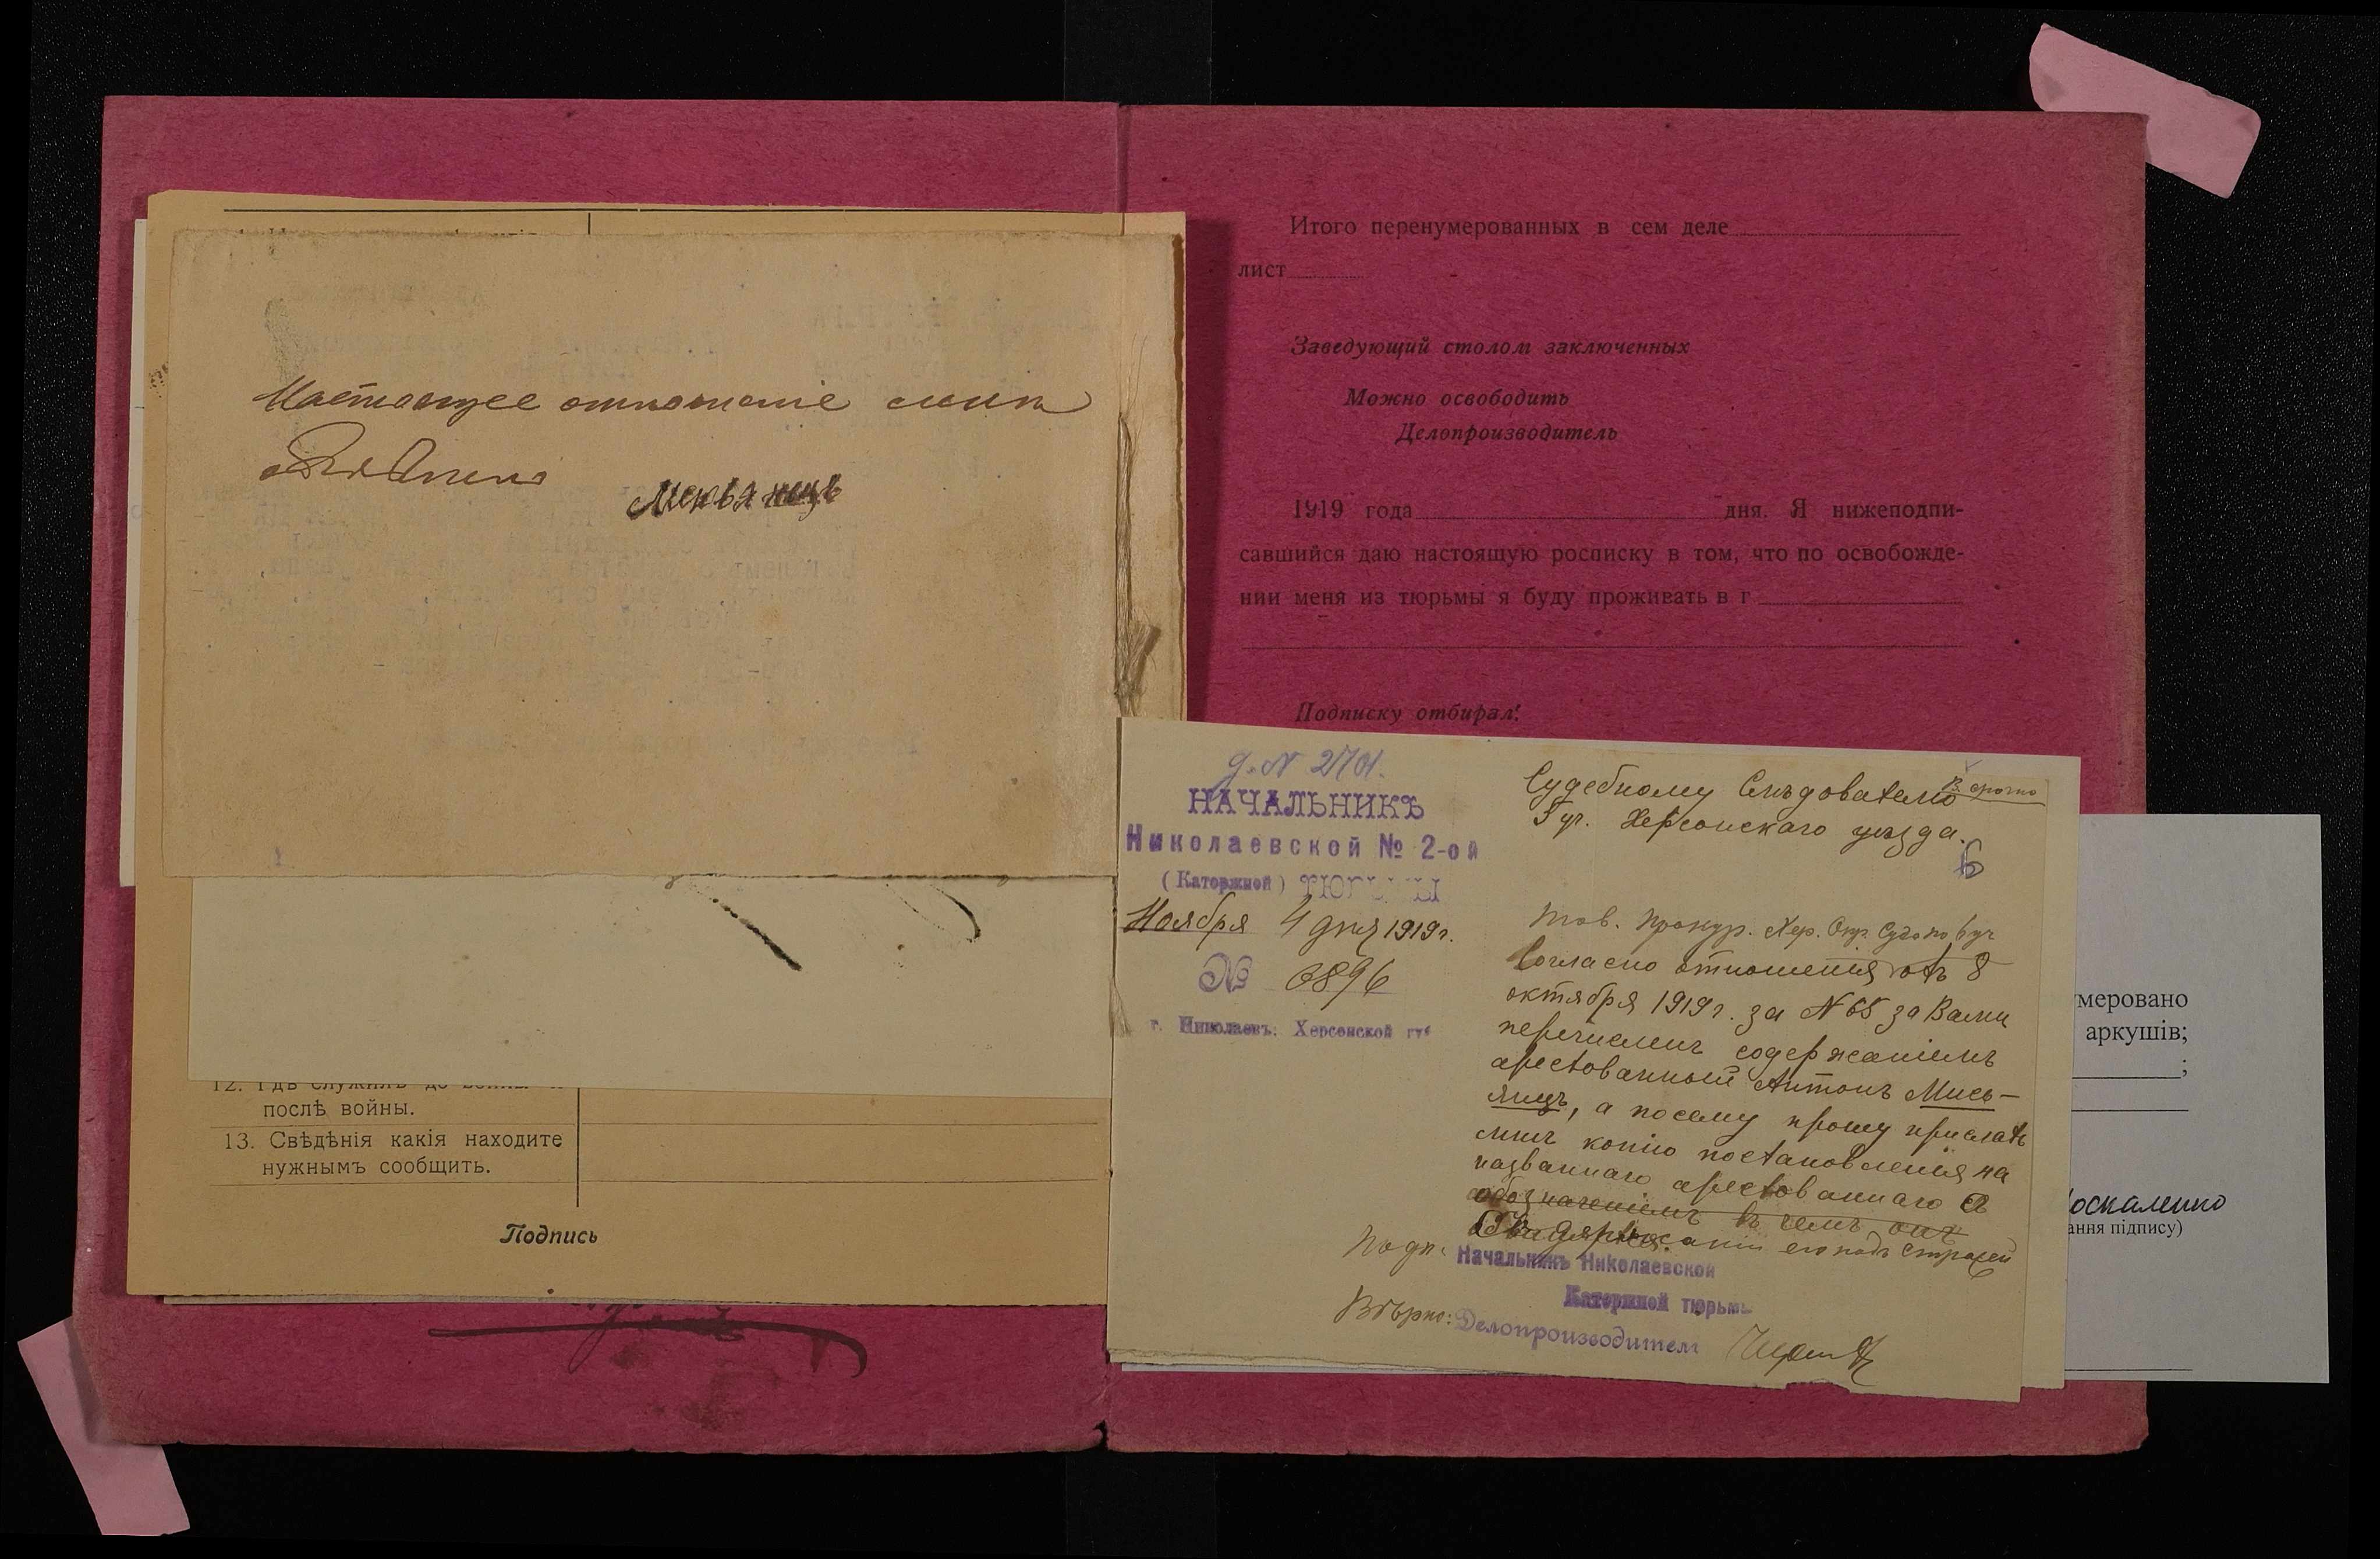 Настоящее отношенiе мнѣ
объявлено
Мисьянцъ
12. Гдѣ служилъ до войны и
послѣ войны.
13. Свѣдѣнiя какiя находите
нужнымъ сообщить.
Подпись
Итого перенумерованных в сем деле
лист
Заведующий столом заключенных
Можно освободить
Делопроизводитель
1919 года дня. Я нижеподпи-
савшийся даю настоящую росписку в том, что по освобожде-
нии меня из тюрьмы я буду проживать в г
Подписку отбирал:
д. N 2701.
НАЧАЛЬНИКЪ
Николаевской № 2-ой
(Каторжной) ТЮРЬМЫ
Ноября 4 дня 1919 г.
№ 6896
г. Николаевъ: Херсонской губ
В. срочно
Судебному Слѣдователю
5 уч. Херсонскаго уѣзда.
6
Тов. Прокур. Хер. Окр. Суда по 6 уч
Согласно отношенiя отъ 8
октября 1919 г. за N 65 за Вами
перечисленъ содержанiемъ
арестованный Антонъ Мись-
янцъ, а посему прошу прислать
мнѣ копiю постановленiя на
названнаго арестованнаго о
обозначенiемъ въ чемъ онъ
содержанiи его подъ стражей
Подп. Начальникъ Николаевской
Каторжной тюрьмы
Вѣрно: Делопроизводитель
умеровано
аркушів;
;
оскаленко
ання підпису)